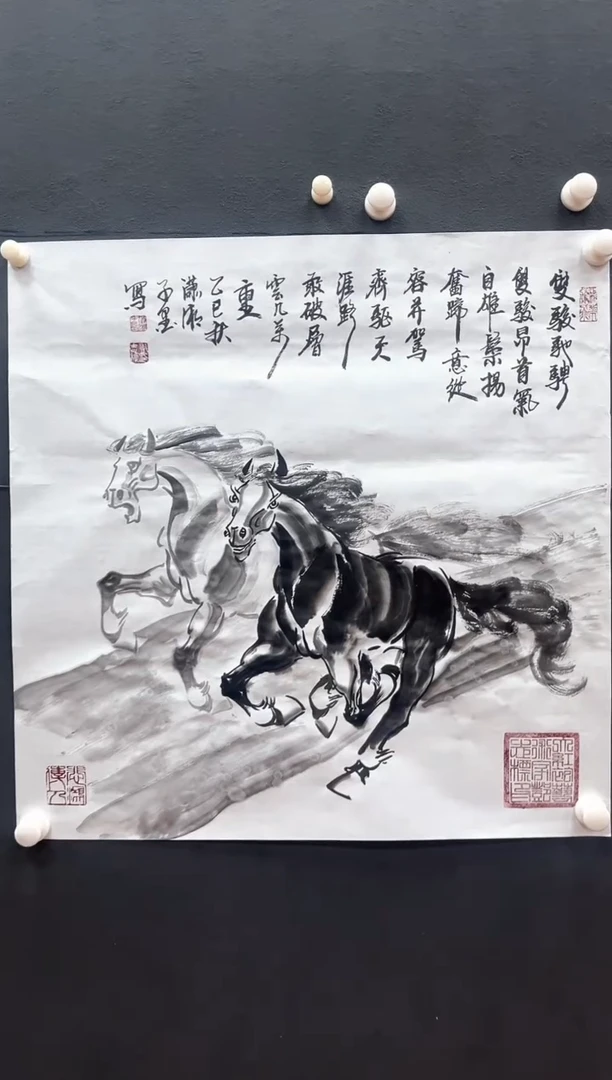 雙駿馳騁
雙駿昂首氣
自雄鬃揚
奮蹄意從
容并駕
齊驅天
涯路
敢破層
雲几萬
重
乙巳秋
瀟湘
子墨
寫